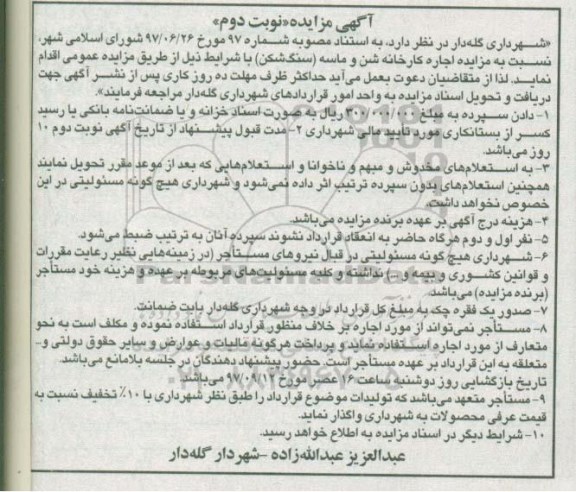 آگهی مزایده«نوبت دوم»
«شهرداری گله‌دار در نظر دارد، به استناد مصوبه شماره ۹۷ مورخ ۹۷/۰۶/۲۶ شورای اسلامی شهر،
نسبت به مزایده اجاره کارخانه شن و ماسه (سنگ‌شکن) با شرایط ذیل از طریق مزایده عمومی اقدام
نماید. لذا از متقاضیان دعوت بعمل می‌آید حداکثر ظرف مهلت ده روز کاری پس از نشر آگهی جهت
دریافت و تحویل اسناد مزایده به واحد امور قراردادهای شهرداری گله‌دار مراجعه فرمایند».
۱- دادن سپرده به مبلغ ۳۰۰/۰۰۰/۰۰۰ ریال به صورت اسناد خزانه و یا ضمانت‌نامه بانکی یا رسید
کسر از بستانکاری مورد تأیید مالی شهرداری ۲- مدت قبول پیشنهاد از تاریخ آگهی نوبت دوم ۱۰
روز می‌باشد.
۳- به استعلام‌های مخدوش و مبهم و ناخوانا و استعلام‌هایی که بعد از موعد مقرر تحویل نمایند
همچنین استعلام‌های بدون سپرده ترتیب اثر داده نمی‌شود و شهرداری هیچ گونه مسئولیتی در این
خصوص نخواهد داشت.
۴- هزینه درج آگهی بر عهده برنده مزایده می‌باشد.
۵- نفر اول و دوم هرگاه حاضر به انعقاد قرارداد نشوند سپرده آنان به ترتیب ضبط می‌شود.
۶- شهرداری هیچ گونه مسئولیتی در قبال نیروهای مستأجر (در زمینه‌هایی نظیر رعایت مقررات
و قوانین کشوری و بیمه و...) نداشته و کلیه مسئولیت‌های مربوطه بر عهده و هزینه خود مستأجر
(برنده مزایده) می‌باشد.
۷- صدور یک فقره چک به مبلغ کل قرارداد در وجه شهرداری گله‌دار بابت ضمانت.
۸- مستأجر نمی‌تواند از مورد اجاره بر خلاف منظور قرارداد استفاده نموده و مکلف است به نحو
متعارف از مورد اجاره استفاده نماید و پرداخت هرگونه مالیات و عوارض و سایر حقوق دولتی و..
متعلقه به این قرارداد بر عهده مستأجر است. حضور پیشنهاد دهندگان در جلسه بلامانع می‌باشد.
تاریخ بازگشایی روز دوشنبه ساعت ۱۶ عصر مورخ می‌باشد.
۹- مستأجر متعهد می‌باشد که تولیدات موضوع قرارداد را طبق نظر شهرداری با ۱۰٪ تخفیف نسبت به
قیمت عرفی محصولات به شهرداری واگذار نماید.
۱۰- شرایط دیگر در اسناد مزایده به اطلاع خواهد رسید.
عبدالعزیز عبدالله‌زاده -شهردار گله‌دار